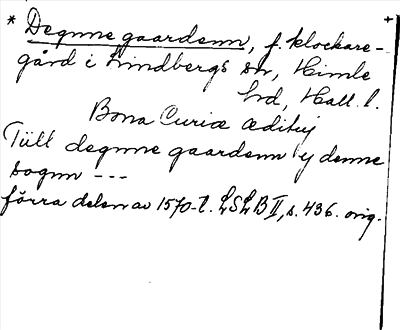 * Degnne gaardenn, f. klockare- +
gård i Lindbergs sn, Himle
hd, Hall. l.
Bona Curiæ ædituj
Tiill degnne gaardenn y denne
sognn ---
förra delen av 1570-t. LSLB II, s. 436. orig.